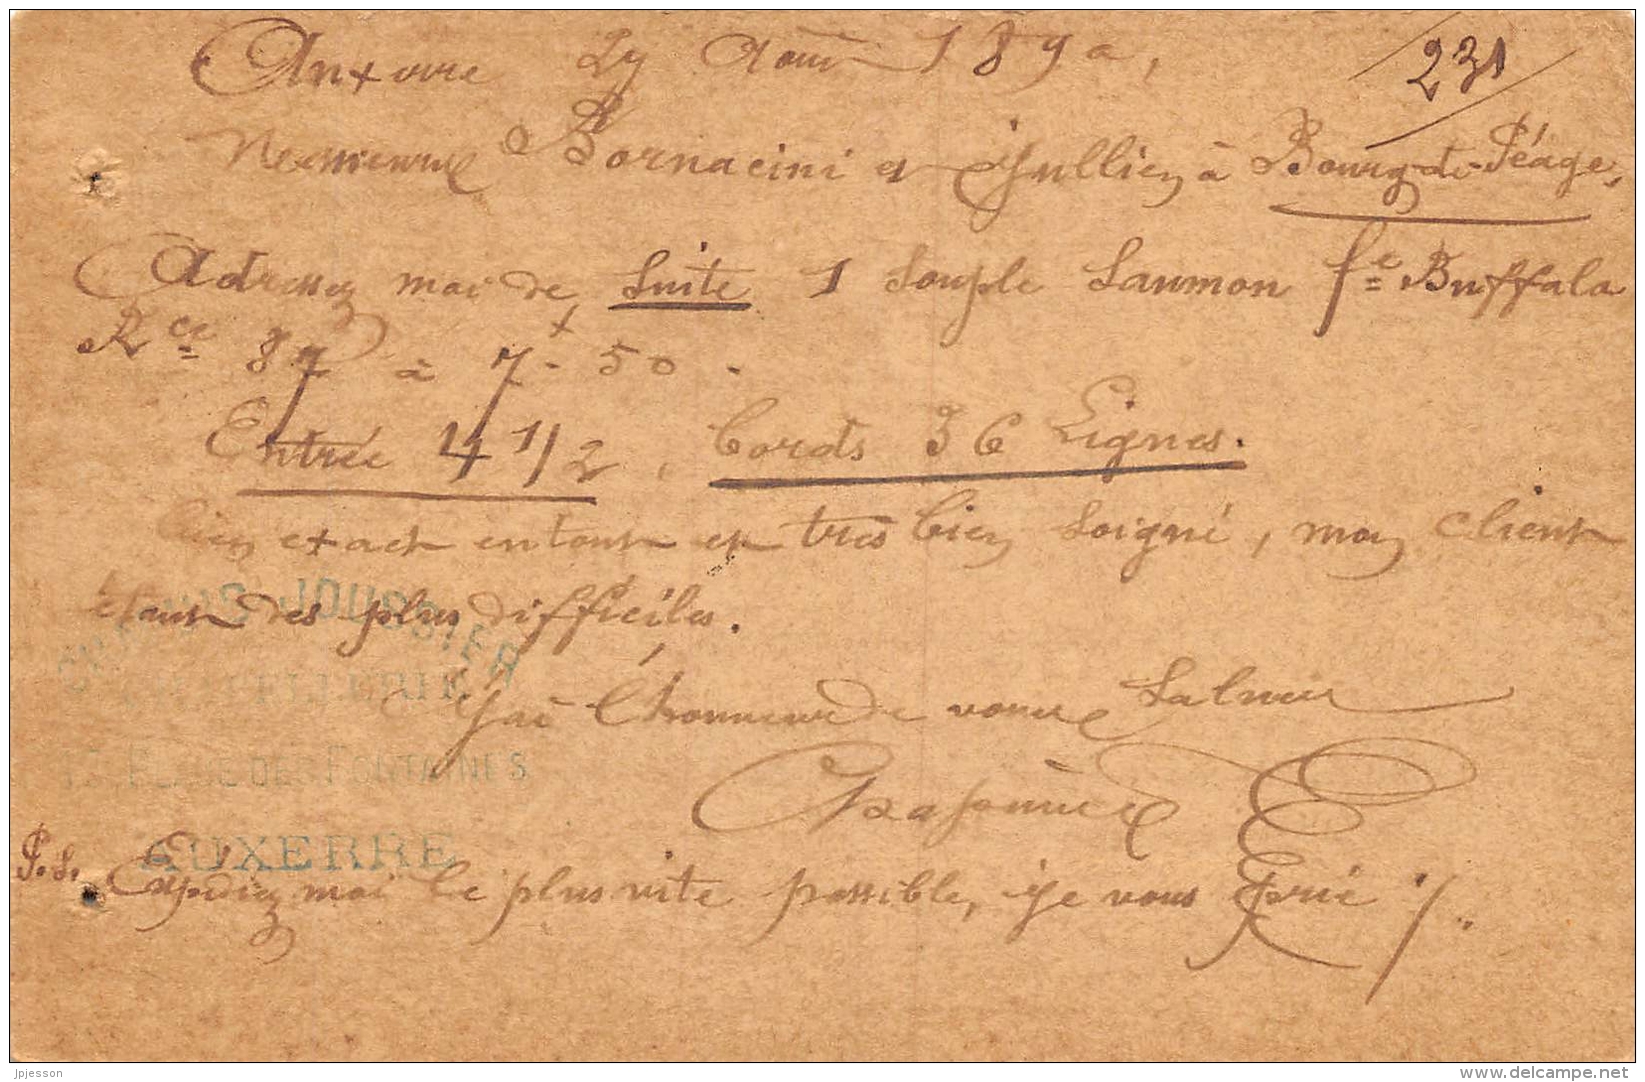 Auxerre 29 Août 1890,
231
Messieurs Bornacini et Jullien à Bourg-de-Péage,
Adressez moi de suite 1 souple Saumon fe Buffalo
Rce 87 à 7f.50.
Entrée 4 1/2, bords 36 Lignes.
bien exact en tout et très bien soigné, mon client
étant des plus difficiles.
J'ai l'honneur de vous saluer
JOUSSIER
CHAPELLERIE
PLACE DES FONTAINES
AUXERRE
P.S. Expédiez moi le plus vite possible, je vous prie
jpjesson
www.delcampe.net